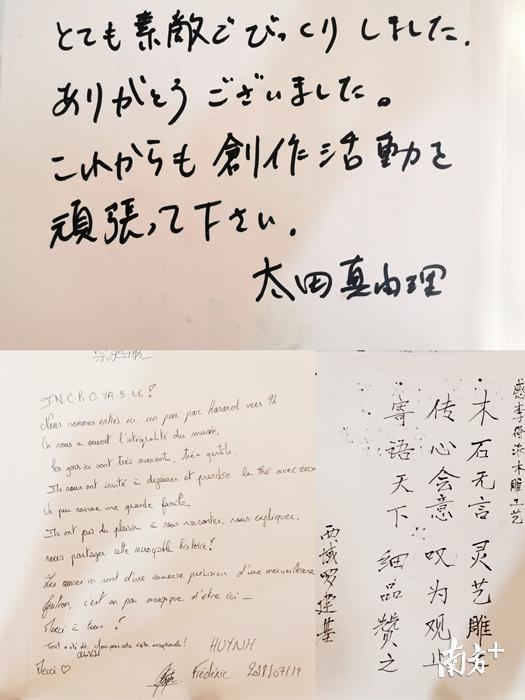 とても素敵でびっくりしました.
ありがとうございました。
これからも創作活動を
頑張って下さい.
太田真由理
INCROYABLE!
Nous sommes entrés ici, un peu par hasard vers 9h.
On nous a ouvert l'intégralité du musée,
les gens ici sont très avenants, très gentils.
Ils nous ont invité à déjeuner et prendre le thé avec eux
un peu comme une grande famille,
Ils ont pris du plaisir à nous raconter, nous expliquer,
nous partager cette incroyable histoire!
Les œuvres ici sont d'une immense précision, d'une merveilleuse
finition, c'est un peu magique d'être ici —
Merci à tous!
Merci ♡
HUYNH
Frédéric 2018/07/19
木石无言 灵艺雕
传心会意 叹为观止
寄语天下 细品赞之
西域罗建基
南方+